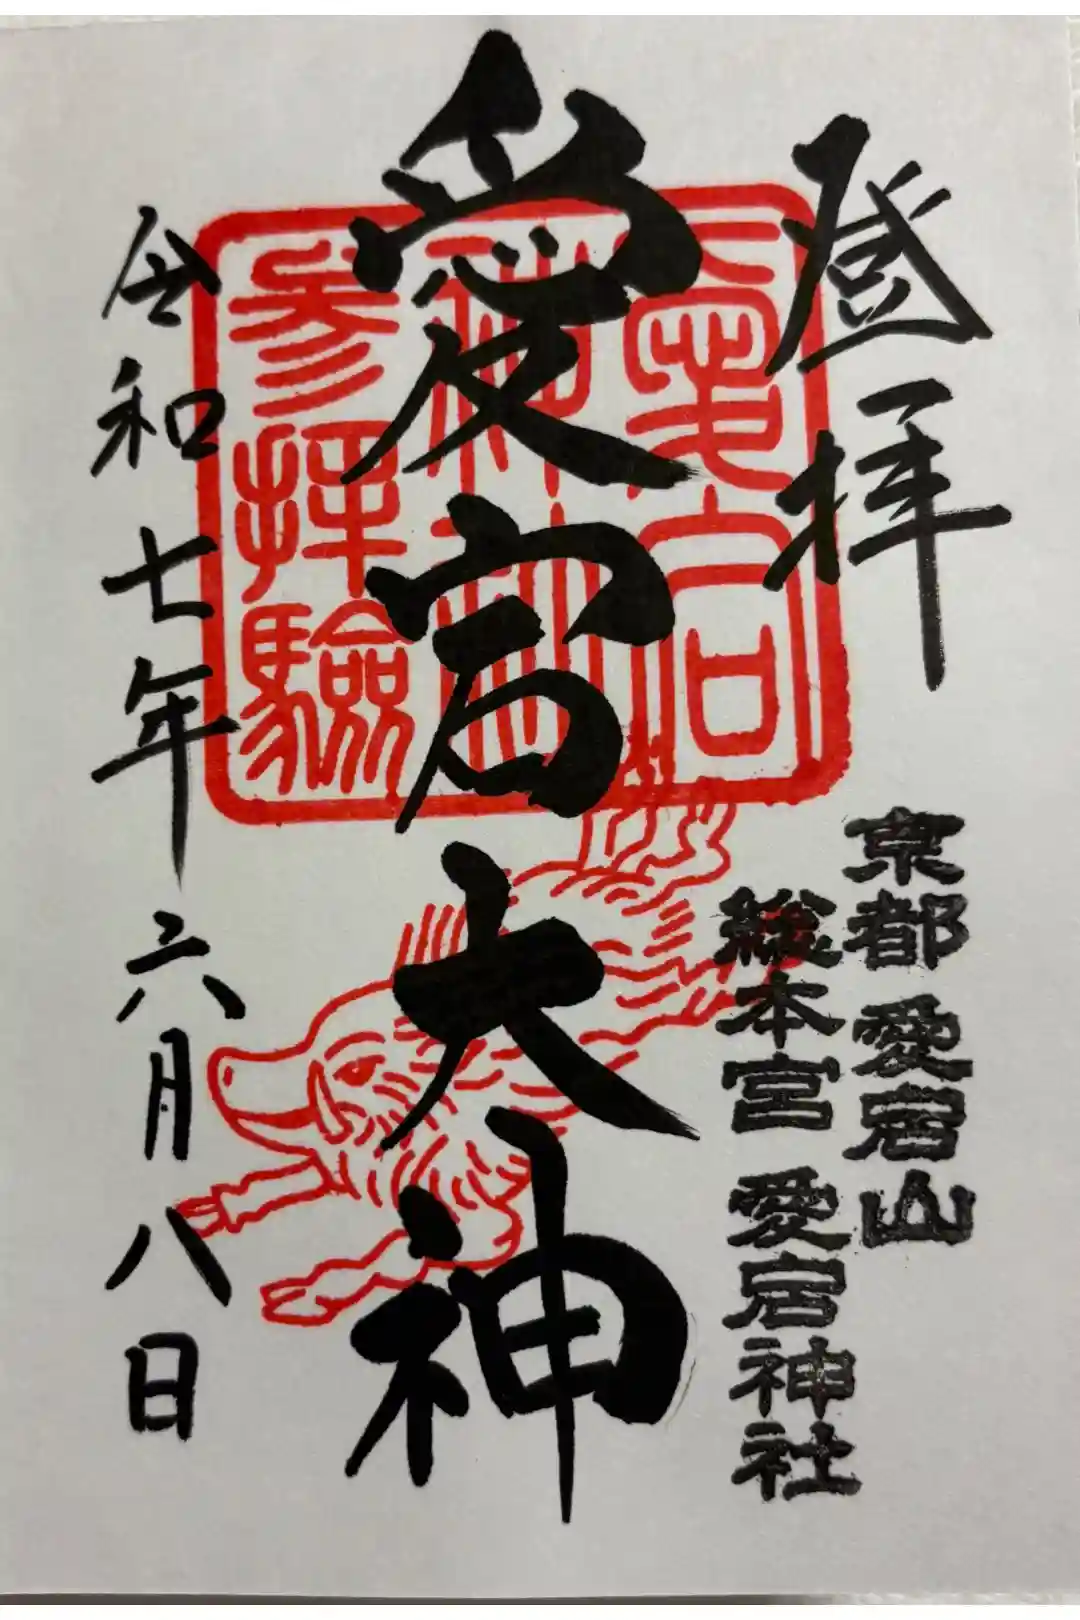 登拝
京都愛宕山
総本宮 愛宕神社
愛宕大神
愛宕
神社
参拝験
令和七年六月八日